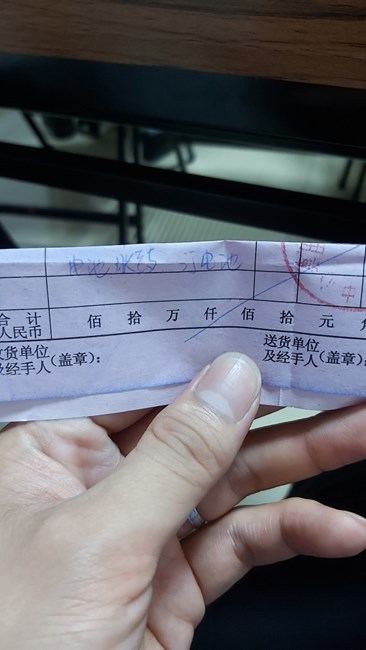 电池 电池
合计 佰 拾 万 仟 佰 拾 元 角
人民币
收货单位 送货单位
及经手人(盖章): 及经手人(盖章):